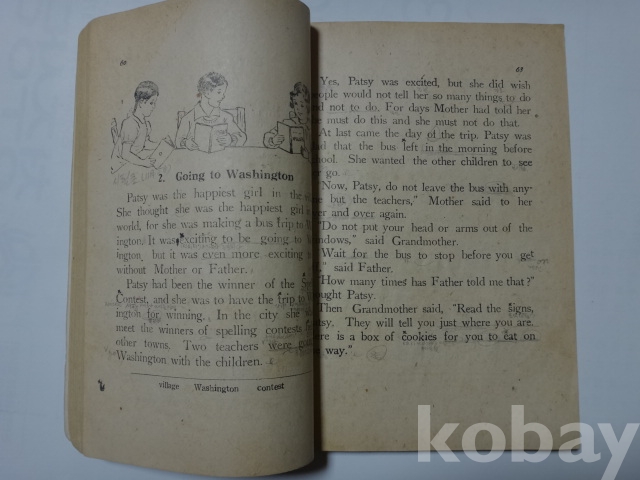 2. Going to Washington
Patsy was the happiest girl in the
She thought she was the happiest girl
world, for she was making a bus trip to
ington. It was exciting to be going to
ington, but it was even more exciting
without Mother or Father.
Patsy had been the winner of the
Contest, and she was to have the trip to
ington for winning. In the city she
meet the winners of spelling contests
other towns. Two teachers were
Washington with the children.
village Washington contest
Yes, Patsy was excited, but she did wish
ople would not tell her so many things to do
nd not to do. For days Mother had told her
he must do this and she must not do that.
At last came the day of the trip. Patsy was
ad that the bus left in the morning before
hool. She wanted the other children to see
er go.
"Now, Patsy, do not leave the bus with any-
ne but the teachers," Mother said to her
er and over again.
"Do not put your head or arms out of the
ndows," said Grandmother.
"Wait for the bus to stop before you get
," said Father.
"How many times has Father told me that?"
ought Patsy.
Then Grandmother said, "Read the signs,
tsy. They will tell you just where you are.
ere is a box of cookies for you to eat on
way."
kobay